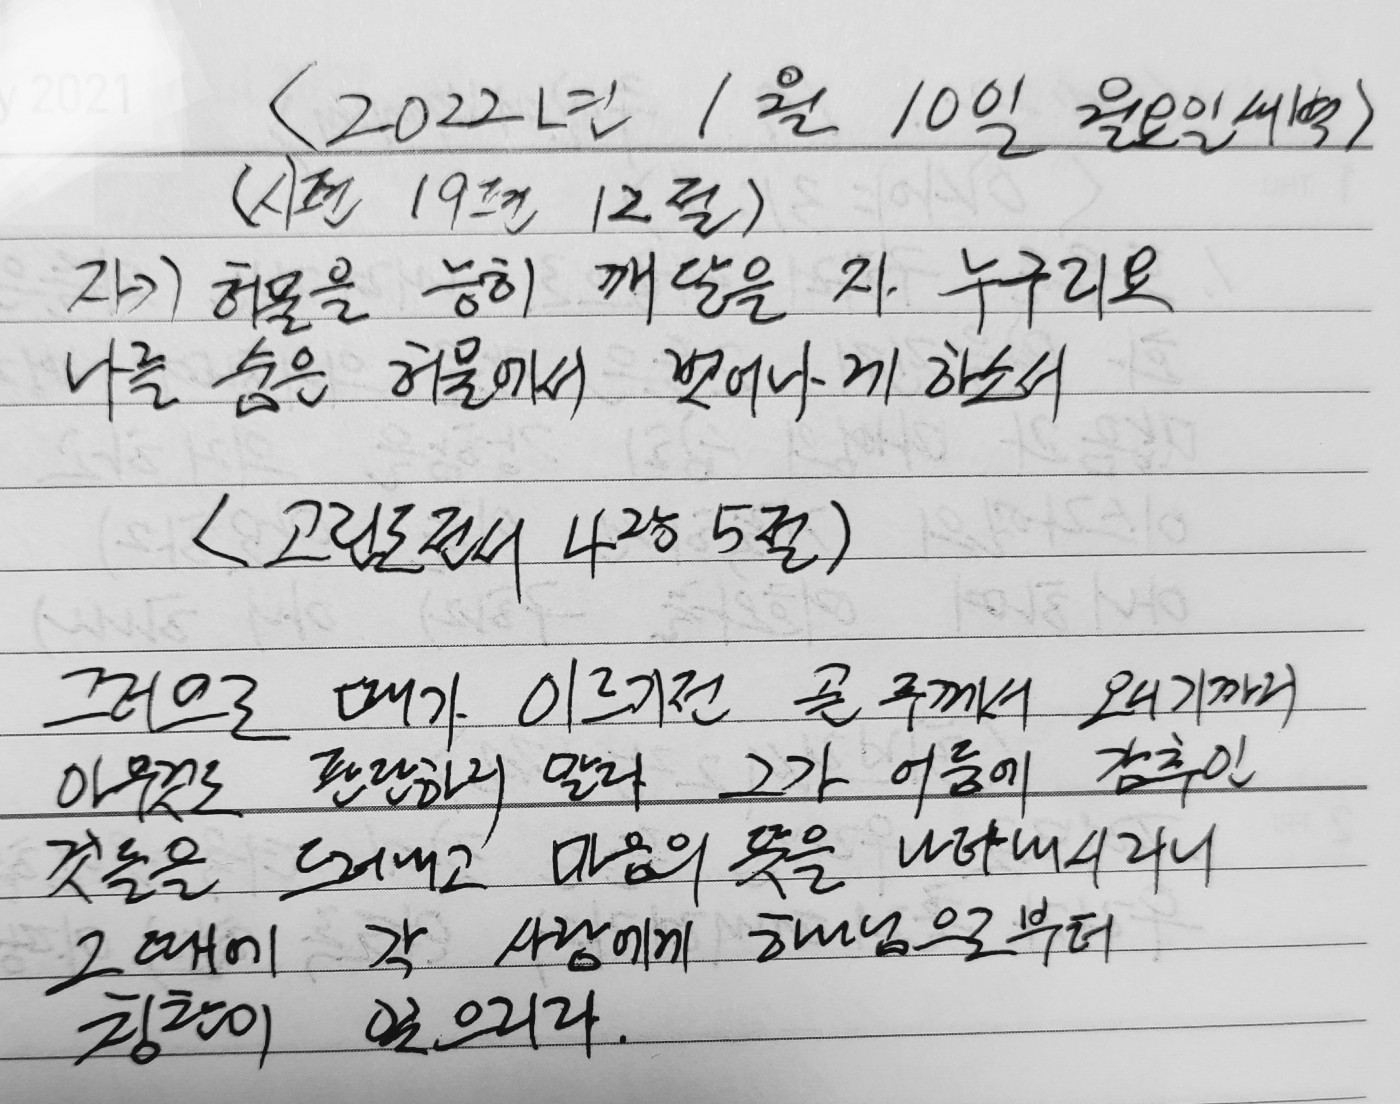 <2022년 1월 10일 월요일 새벽>
(시편 19편 12절)
자기 허물을 능히 깨달을 자 누구리요
나를 숨은 허물에서 벗어나게 하소서
<고린도전서 4장 5절)
그러므로 때가 이르기전 곧 주께서 오시기까지
아무것도 판단하지 말라 그가 어둠에 감추인
것들을 드러내고 마음의 뜻을 나타내시리니
그때에 각 사람에게 하나님으로부터
칭찬이 있으리라.